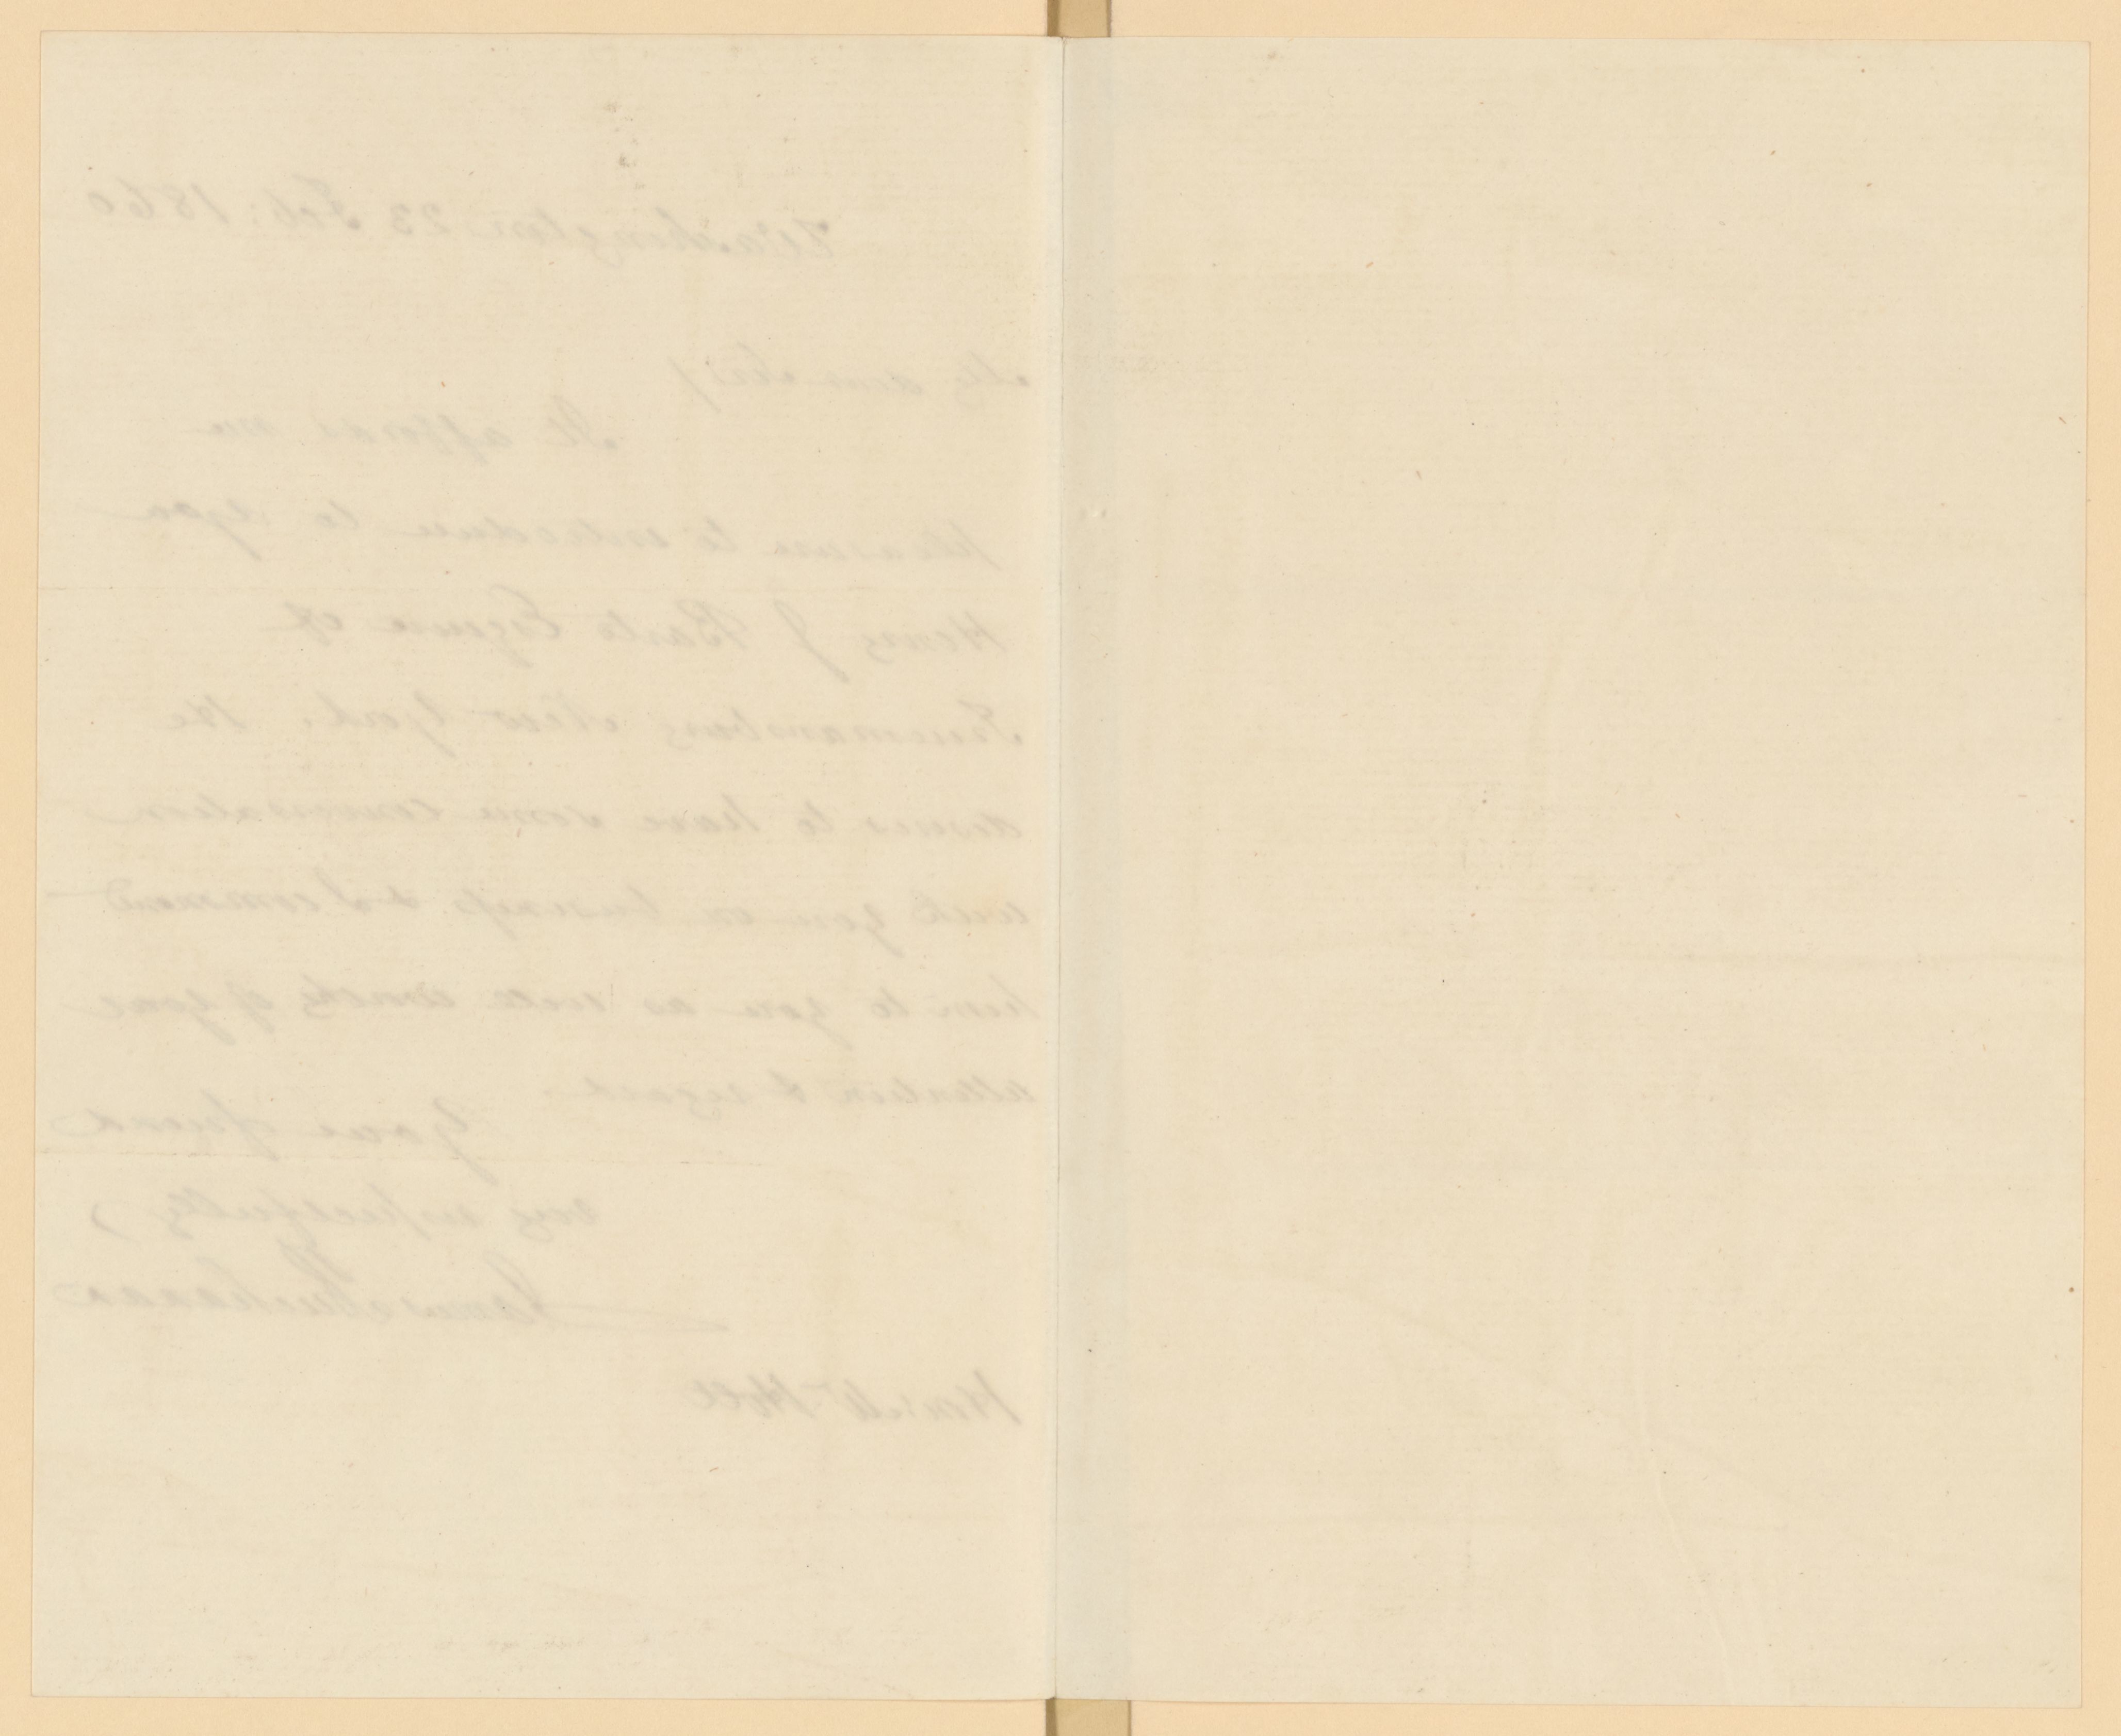 Washington 23 Feb: 1860
My dear Sir/
It affords me
pleasure to introduce to you
Henry J Esquire of
Trumansburg New York. He
desires to have some conversation
with you on business & I commend
him to you as well worthy of your
attention & regard.
Your friend
very respectfully
James Buchanan